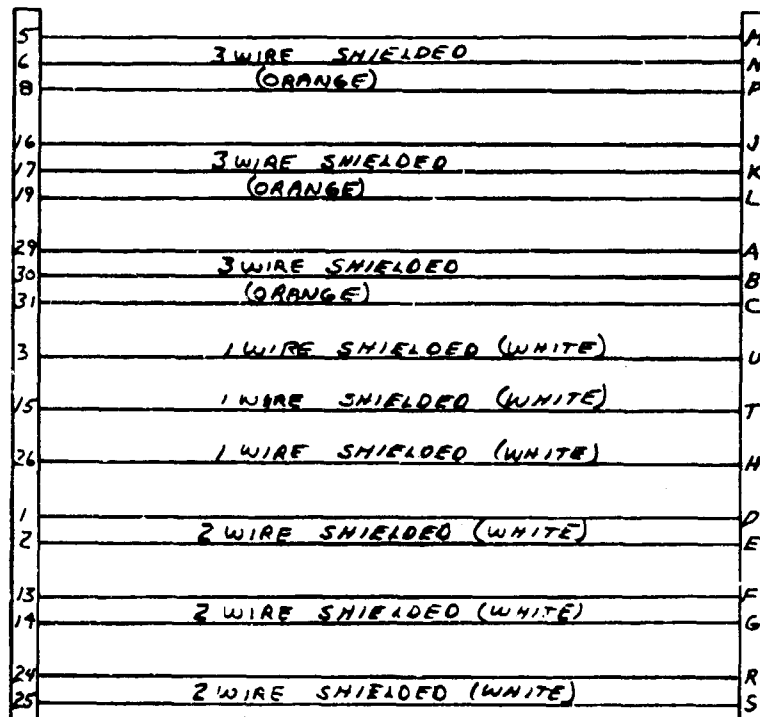 5 M
3 WIRE SHIELDED
6 N
(ORANGE)
8 P
16 J
3 WIRE SHIELDED
17 K
(ORANGE)
19 L
29 A
3 WIRE SHIELDED
30 B
(ORANGE)
31 C
3 1 WIRE SHIELDED (WHITE) U
15 1 WIRE SHIELDED (WHITE) T
26 1 WIRE SHIELDED (WHITE) H
1 D
2 WIRE SHIELDED (WHITE)
2 E
13 F
2 WIRE SHIELDED (WHITE)
14 G
24 R
2 WIRE SHIELDED (WHITE)
25 S